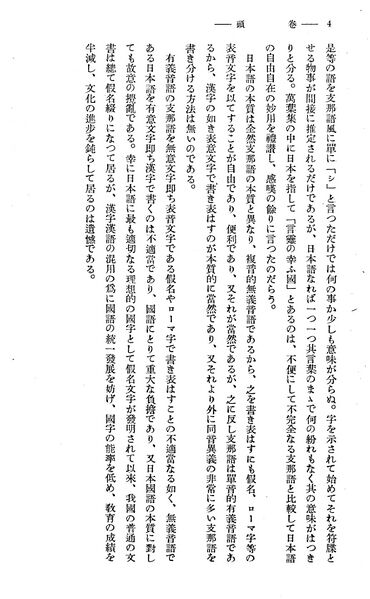 4 ―― 卷 頭 ――
是等の語を支那語風に單に『シ』と言つただけでは何の事か少しも意味が分らぬ。字を示されて始めてそれを符牒と
せる物事が間接に推定されるだけであるが、日本語なれば一つ一つ其言葉のまゝで何の紛れもなく其の意味がはつき
りと分る。萬葉集の中に日本を指して「言靈の幸ふ國」とあるのは、不便にして不完全なる支那語と比較して日本語
の自由自在の妙用を禮讃し、感嘆の餘りに言つたのだらう。
日本語の本質は全然支那語の本質と異なり、複音的無義音語であるから、之を書き表はすにも假名、ローマ字等の
表音文字を以てすることが自由であり、便利であり、又それが當然であるが、之に反し支那語は單音的有義音語であ
るから、漢字の如き表意文字で書き表はすのが本質的に當然であり、又それより外に同音異義の非常に多い支那語を
書き分ける方法は無いのである。
有義音語の支那語を無意文字卽ち表音文字である假名やローマ字で書き表はすことの不適當なる如く、無義音語で
ある日本語を有意文字卽ち漢字で書くのは不適當であり、國語にとりて重大な負擔であり、又日本國語の本質に對し
ても故意の攪亂である。幸に日本語に最も適切なる理想的の國字として假名文字が發明されて以來、我國の普通の文
書は總て假名綴りになつて居るが、漢字漢語の混用の爲に國語の統一發展を妨げ、國字の能率を低め、敎育の成績を
半減し、文化の進步を鈍らして居るのは遺憾である。